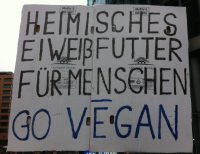 HEIMISCHES
EIWEIßFUTTER
FÜR MENSCHEN
GO VEGAN